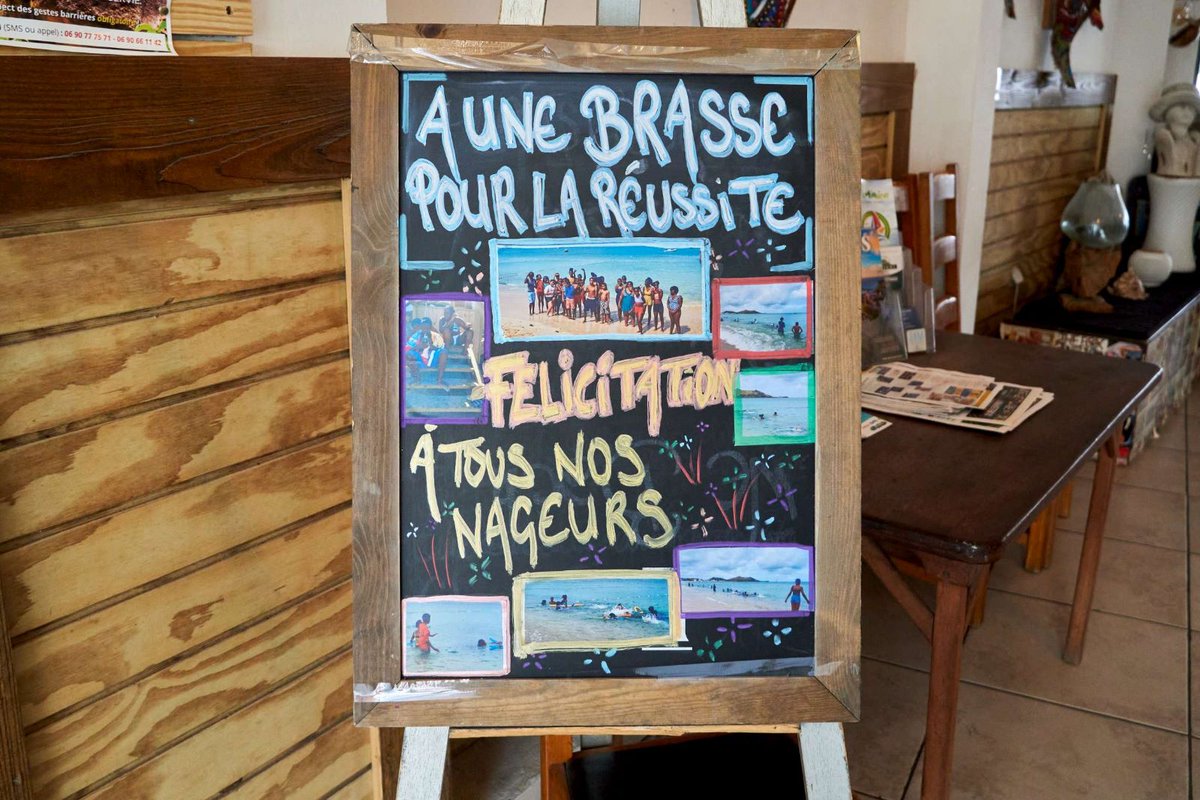 ect des gestes barrières obligatoires
(SMS ou appel) : 06 90 77 75 71 - 06 90 66 11 42
A UNE BRASSE
POUR LA RÉUSSITE
FELICITATION
À TOUS NOS
NAGEURS